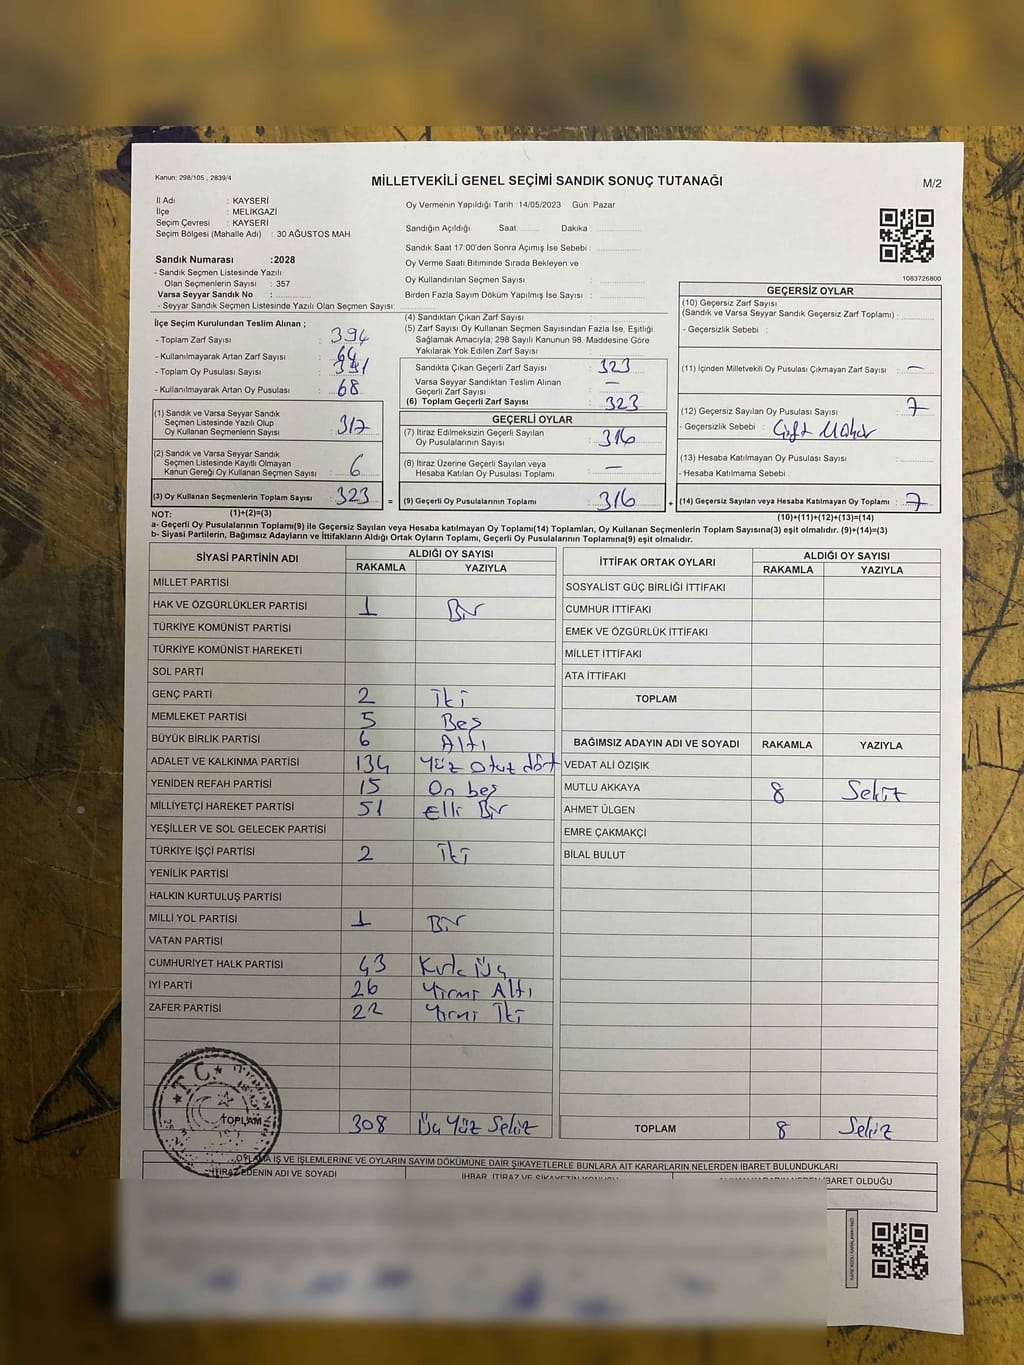 Kanun; 298/105 , 2839/4
MİLLETVEKİLİ GENEL SEÇİMİ SANDIK SONUÇ TUTANAĞI
M/2
İl Adı : KAYSERİ
İlçe : MELİKGAZİ
Seçim Çevresi : KAYSERİ
Seçim Bölgesi (Mahalle Adı) : 30 AĞUSTOS MAH.
Sandık Numarası :2028
- Sandık Seçmen Listesinde Yazılı
Olan Seçmenlerin Sayısı : 357
Varsa Seyyar Sandık No :
- Seyyar Sandık Seçmen Listesinde Yazılı Olan Seçmen Sayısı:
Oy Vermenin Yapıldığı Tarih :14/05/2023 Gün: Pazar
Sandığın Açıldığı Saat Dakika :
Sandık Saat 17:00'den Sonra Açımış İse Sebebi :
Oy Verme Saati Bitiminde Sırada Bekleyen ve
Oy Kullandırılan Seçmen Sayısı :
Birden Fazla Sayım Döküm Yapılmış İse Sayısı :
1083726800
İlçe Seçim Kurulundan Teslim Alınan ;
- Toplam Zarf Sayısı : 394
- Kullanılmayarak Artan Zarf Sayısı :
- Toplam Oy Pusulası Sayısı :
- Kullanılmayarak Artan Oy Pusulası : 68
(1) Sandık ve Varsa Seyyar Sandık
Seçmen Listesinde Yazılı Olup
Oy Kullanan Seçmenlerin Sayısı : 317
(2) Sandık ve Varsa Seyyar Sandık
Seçmen Listesinde Kayıtlı Olmayan
Kanun Gereği Oy Kullanan Seçmen Sayısı : 6
(3) Oy Kullanan Seçmenlerin Toplam Sayısı : 323
(4) Sandıktan Çıkan Zarf Sayısı :
(5) Zarf Sayısı Oy Kullanan Seçmen Sayısından Fazla İse, Eşitliği
Sağlamak Amacıyla; 298 Sayılı Kanunun 98. Maddesine Göre
Yakılarak Yok Edilen Zarf Sayısı :
Sandıkta Çıkan Geçerli Zarf Sayısı : 323
Varsa Seyyar Sandıktan Teslim Alınan
Geçerli Zarf Sayısı : —
(6) Toplam Geçerli Zarf Sayısı : 323
GEÇERLİ OYLAR
(7) İtiraz Edilmeksizin Geçerli Sayılan
Oy Pusulalarının Sayısı : 316
(8) İtiraz Üzerine Geçerli Sayılan veya
Hesaba Katılan Oy Pusulası Toplamı : —
= (9) Geçerli Oy Pusulalarının Toplamı : 316
GEÇERSİZ OYLAR
(10) Geçersiz Zarf Sayısı
(Sandık ve Varsa Seyyar Sandık Geçersiz Zarf Toplamı) :
- Geçersizlik Sebebi :
(11) İçinden Milletvekili Oy Pusulası Çıkmayan Zarf Sayısı : —
(12) Geçersiz Sayılan Oy Pusulası Sayısı : 7
- Geçersizlik Sebebi : Çift Mühür
(13) Hesaba Katılmayan Oy Pusulası Sayısı :
- Hesaba Katılmama Sebebi :
+ (14) Geçersiz Sayılan veya Hesaba Katılmayan Oy Toplamı : 7
NOT: (1)+(2)=(3)
(10)+(11)+(12)+(13)=(14)
a- Geçerli Oy Pusulalarının Toplamı(9) ile Geçersiz Sayılan veya Hesaba katılmayan Oy Toplamı(14) Toplamları, Oy Kullanan Seçmenlerin Toplam Sayısına(3) eşit olmalıdır. (9)+(14)=(3)
b- Siyasi Partilerin, Bağımsız Adayların ve İttifakların Aldığı Ortak Oyların Toplamı, Geçerli Oy Pusulalarının Toplamına(9) eşit olmalıdır.
SİYASİ PARTİNİN ADI ALDIĞI OY SAYISI
RAKAMLA YAZIYLA
MİLLET PARTİSİ
HAK VE ÖZGÜRLÜKLER PARTİSİ 1 Bir
TÜRKİYE KOMÜNİST PARTİSİ
TÜRKİYE KOMÜNİST HAREKETİ
SOL PARTİ
GENÇ PARTİ 2 İki
MEMLEKET PARTİSİ 5 Beş
BÜYÜK BİRLİK PARTİSİ 6 Altı
ADALET VE KALKINMA PARTİSİ 134 Yüz Otuz dört
YENİDEN REFAH PARTİSİ 15 On beş
MİLLİYETÇİ HAREKET PARTİSİ 51 Elli Bir
YEŞİLLER VE SOL GELECEK PARTİSİ
TÜRKİYE İŞÇİ PARTİSİ 2 İki
YENİLİK PARTİSİ
HALKIN KURTULUŞ PARTİSİ
MİLLİ YOL PARTİSİ 1 Bir
VATAN PARTİSİ
CUMHURİYET HALK PARTİSİ 43 Kırk Üç
İYİ PARTİ 26 Yirmi Altı
ZAFER PARTİSİ 22 Yirmi İki
T.C.
TOPLAM 308 Üç Yüz Sekiz
İTTİFAK ORTAK OYLARI ALDIĞI OY SAYISI
RAKAMLA YAZIYLA
SOSYALİST GÜÇ BİRLİĞİ İTTİFAKI
CUMHUR İTTİFAKI
EMEK VE ÖZGÜRLÜK İTTİFAKI
MİLLET İTTİFAKI
ATA İTTİFAKI
TOPLAM
BAĞIMSIZ ADAYIN ADI VE SOYADI RAKAMLA YAZIYLA
VEDAT ALİ ÖZIŞIK
MUTLU AKKAYA 8 Sekiz
AHMET ÜLGEN
EMRE ÇAKMAKÇİ
BİLAL BULUT
TOPLAM 8 Sekiz
OYLAMA İŞ VE İŞLEMLERİNE VE OYLARIN SAYIM DÖKÜMÜNE DAİR ŞİKAYETLERLE BUNLARA AİT KARARLARIN NELERDEN İBARET BULUNDUKLARI
İTİRAZ EDENİN ADI VE SOYADI
İHBAR, İTİRAZ VE ŞİKAYETİN KONUSU
İBARET OLDUĞU